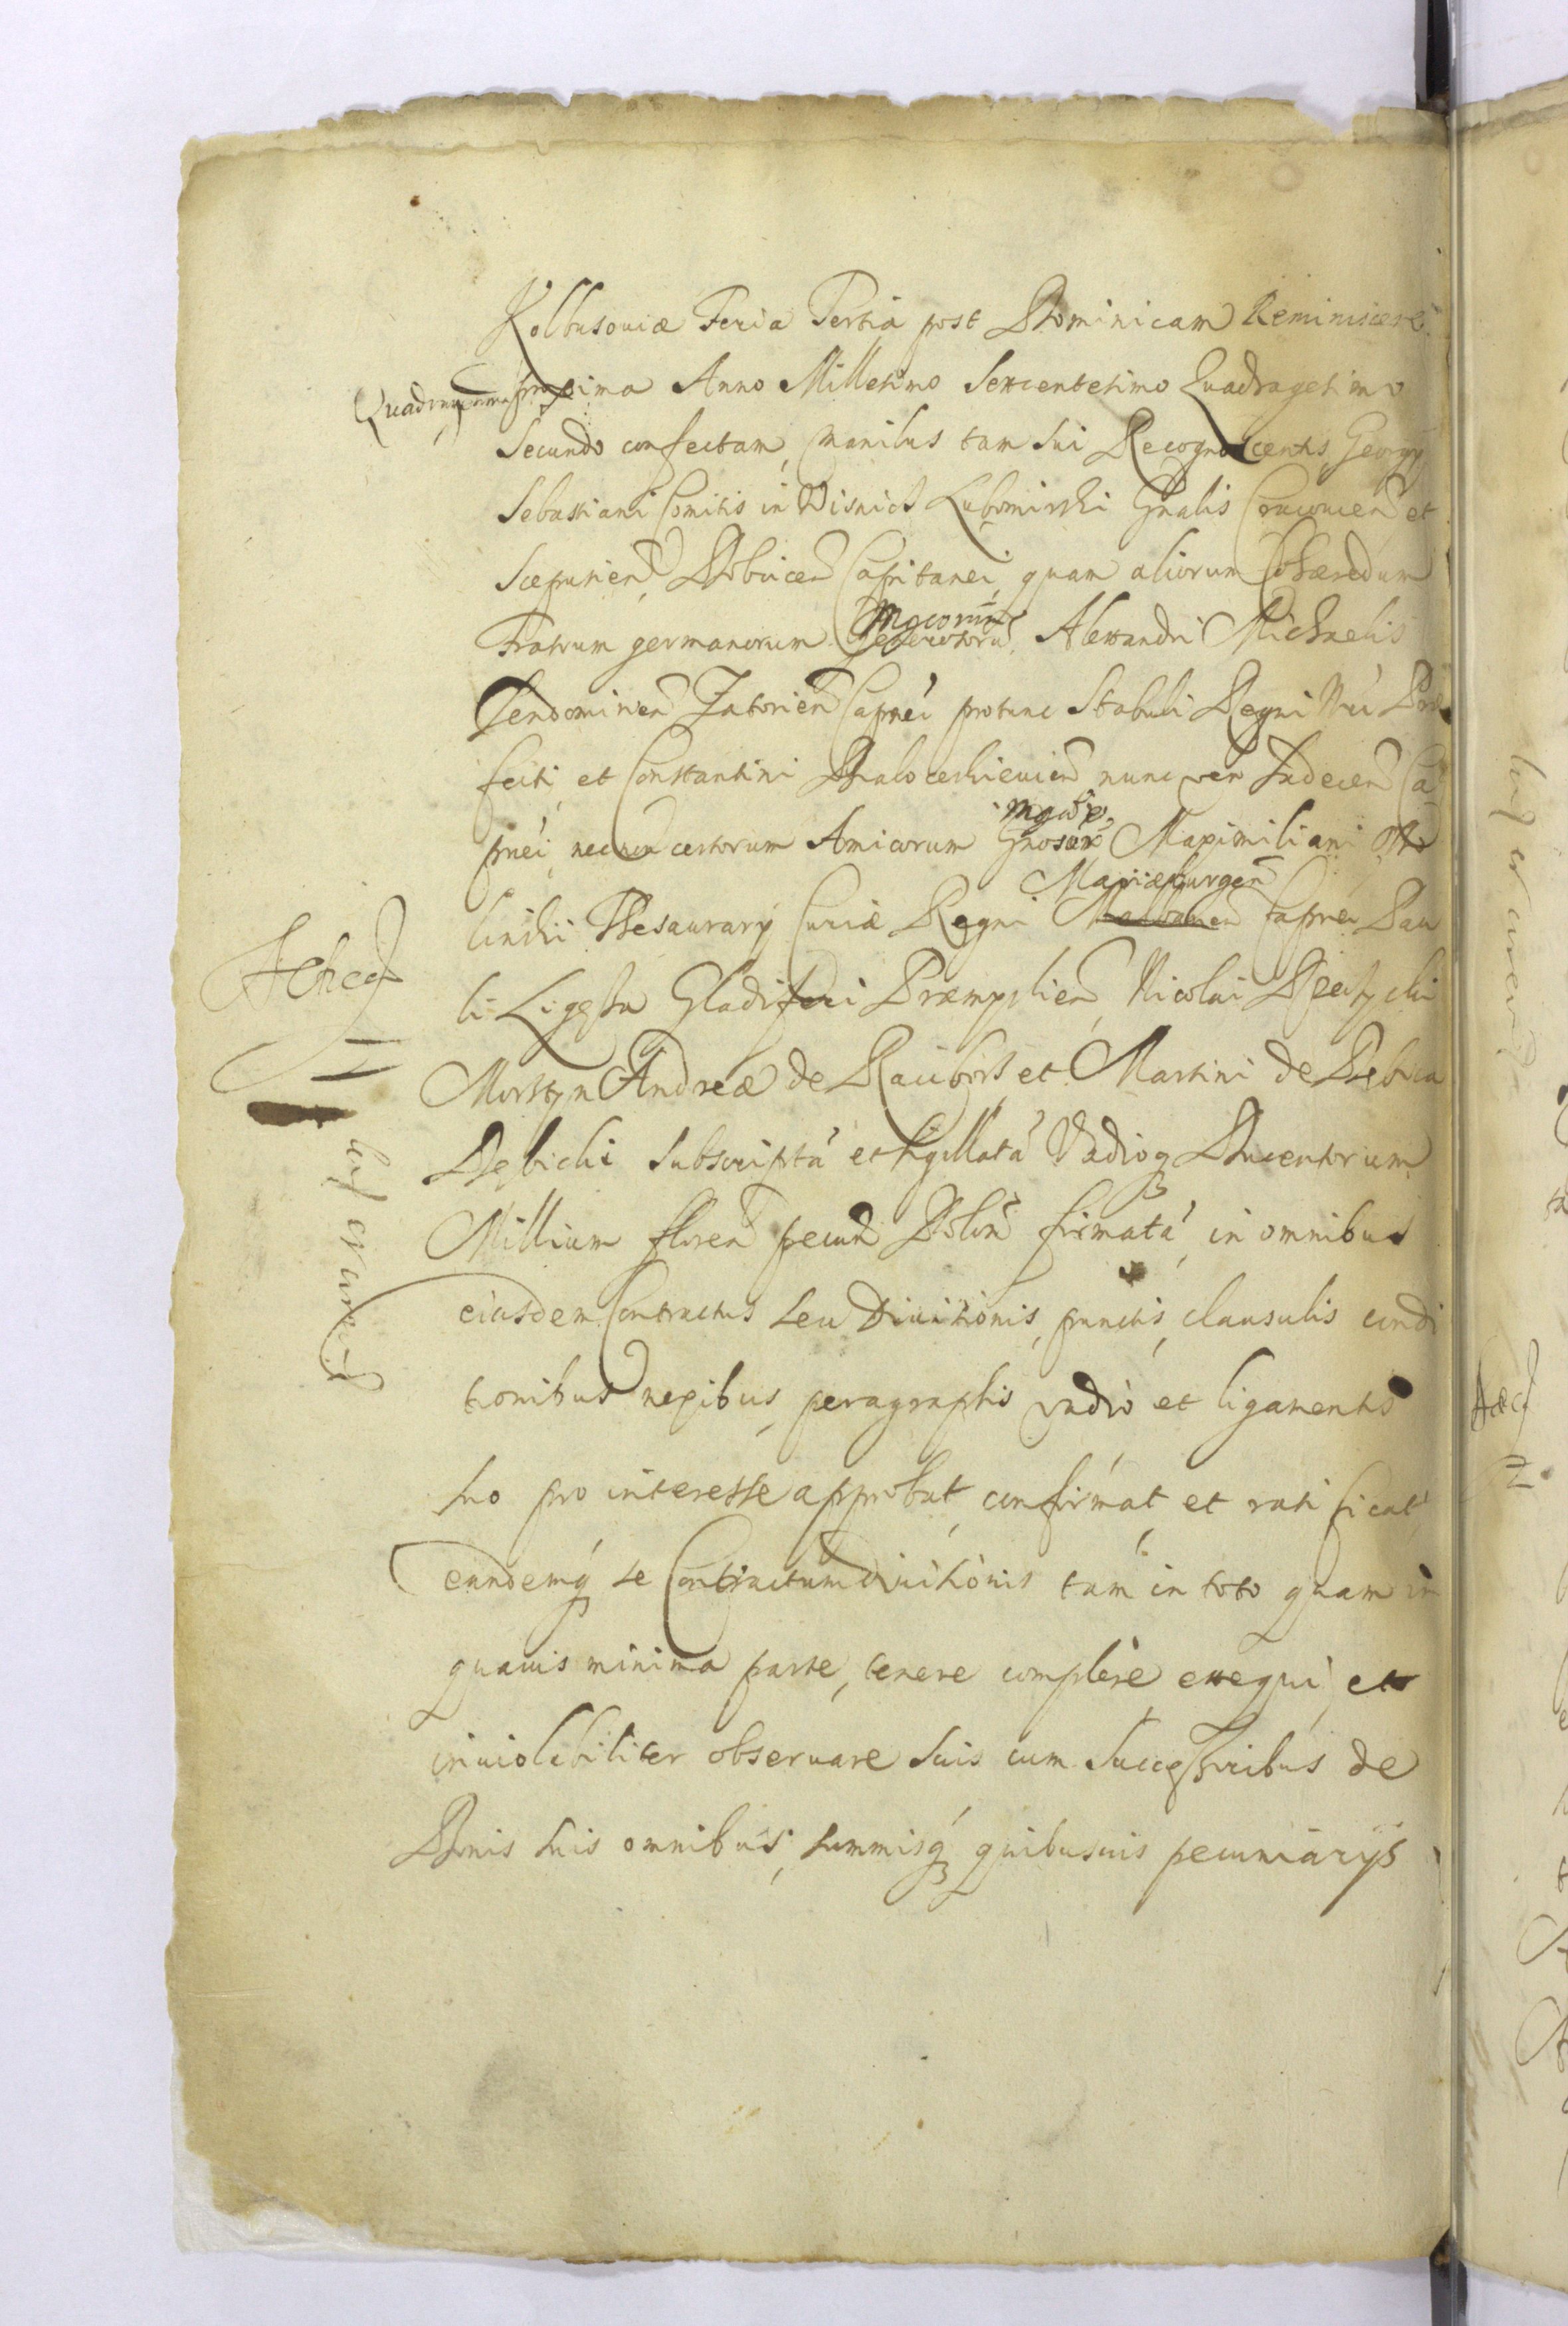 Kolbusouiæ Feria Tertia post Dominicam Reminiscere
Quadragesimæ proxima Anno Millesimo Sexcentesimo Quadragesimo
Secundo confectam, manibus tam sui Recognoscentis Georgy
Sebastiani Comitis in Visnicz Lubomirski Gnalis Cracouien et
Scepusien, Dobcicen Capitanei, quam aliorum Cohæredum
Fratrum germanorum Mgcorum Alexandri Michaelis
Sendomirien Zatorien Capnei protunc Stabuli Regni Præ
fecti, et Constantini Bialocerkieuien nunc vero Sadecen Ca
pnei, necnon certorum Amicorum Maximiliani
linski Thesaurary Curiæ Regni Mariæburgen Capnei Pau
li Ligeza Gladiferi Præmyslien, Nicolai
Morstyn Andreæ de Raciborsk et Martini de Dębica
Dębicki subscriptá et sigillatá Vadioq Ducentorum
Millium floren pecun Polon firmatá, in omnibus
eiusdem Contractus seu Diuisionis, punctis, clausulis condi
tionibus nexibus, peragraphis vadio et ligamentis
suo pro interesse approbat, confirmat, et ratificat,
eundemq se Contractum Diuisionis tam in toto quam in
quauis minima parte, tenere complere exequi, et
inuiolabiliter obseruare suis cum Successoribus de
Bonis suis omnibus, summisq quibusuis pecuniarijs